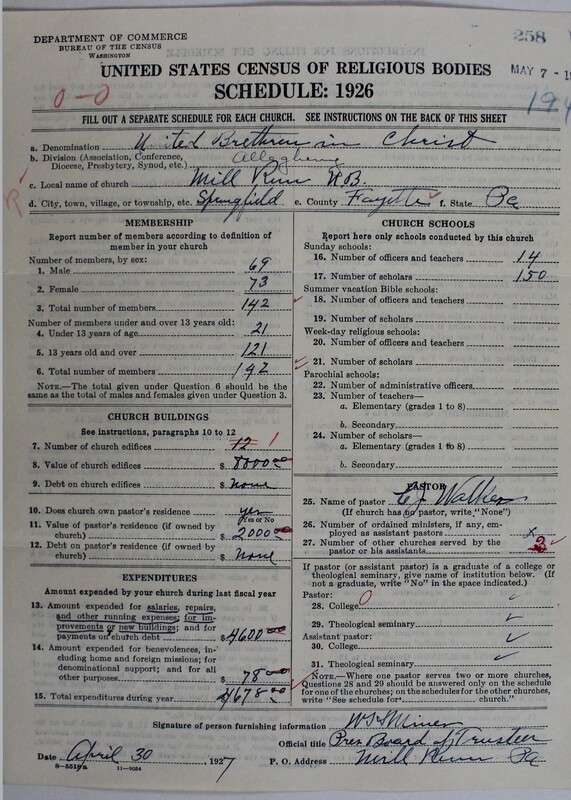 DEPARTMENT OF COMMERCE
BUREAU OF THE CENSUS
WASHINGTON
258
UNITED STATES CENSUS OF RELIGIOUS BODIES
MAY 7 - 19
SCHEDULE: 1926
0-0
194
FILL OUT A SEPARATE SCHEDULE FOR EACH CHURCH. SEE INSTRUCTIONS ON THE BACK OF THIS SHEET
a. Denomination United Brethren in Christ
b. Division (Association, Conference, Diocese, Presbytery, Synod, etc.) Allegheny
c. Local name of church Mill Run U.B.
d. City, town, village, or township, etc. Springfield e. County Fayette f. State Pa
MEMBERSHIP
Report number of members according to definition of member in your church
Number of members, by sex:
1. Male 69
2. Female 73
3. Total number of members 142
Number of members under and over 13 years old:
4. Under 13 years of age 21
5. 13 years old and over 121
6. Total number of members 142
NOTE.—The total given under Question 6 should be the same as the total of males and females given under Question 3.
CHURCH BUILDINGS
See instructions, paragraphs 10 to 12
7. Number of church edifices 12 1
8. Value of church edifices $ 8000.00
9. Debt on church edifices $ None
10. Does church own pastor's residence? yes
Yes or No
11. Value of pastor's residence (if owned by church) $ 2000.00
12. Debt on pastor's residence (if owned by church) $ None
EXPENDITURES
Amount expended by your church during last fiscal year
13. Amount expended for salaries, repairs, and other running expenses; for improvements or new buildings; and for payments on church debt $ 4600.00
14. Amount expended for benevolences, including home and foreign missions; for denominational support; and for all other purposes $ 78.00
15. Total expenditures during year $ 4678.00
CHURCH SCHOOLS
Report here only schools conducted by this church
Sunday schools:
16. Number of officers and teachers 14
17. Number of scholars 150
Summer vacation Bible schools:
18. Number of officers and teachers
19. Number of scholars
Week-day religious schools:
20. Number of officers and teachers
21. Number of scholars
Parochial schools:
22. Number of administrative officers
23. Number of teachers—
a. Elementary (grades 1 to 8)
b. Secondary
24. Number of scholars—
a. Elementary (grades 1 to 8)
b. Secondary
PASTOR
25. Name of pastor Walker
(If church has no pastor, write "None")
26. Number of ordained ministers, if any, employed as assistant pastors x
27. Number of other churches served by the pastor or his assistants 2
If pastor (or assistant pastor) is a graduate of a college or theological seminary, give name of institution below. (If not a graduate, write "No" in the space indicated.)
Pastor:
28. College 0
29. Theological seminary
Assistant pastor:
30. College
31. Theological seminary
NOTE.—Where one pastor serves two or more churches, Questions 28 and 29 should be answered only on the schedule for one of the churches; on the schedules for the other churches, write "See schedule for church."
Signature of person furnishing information W S Miner
Official title Pres Board of Trustees
Date April 30, 1927 P. O. Address Mill Run Pa